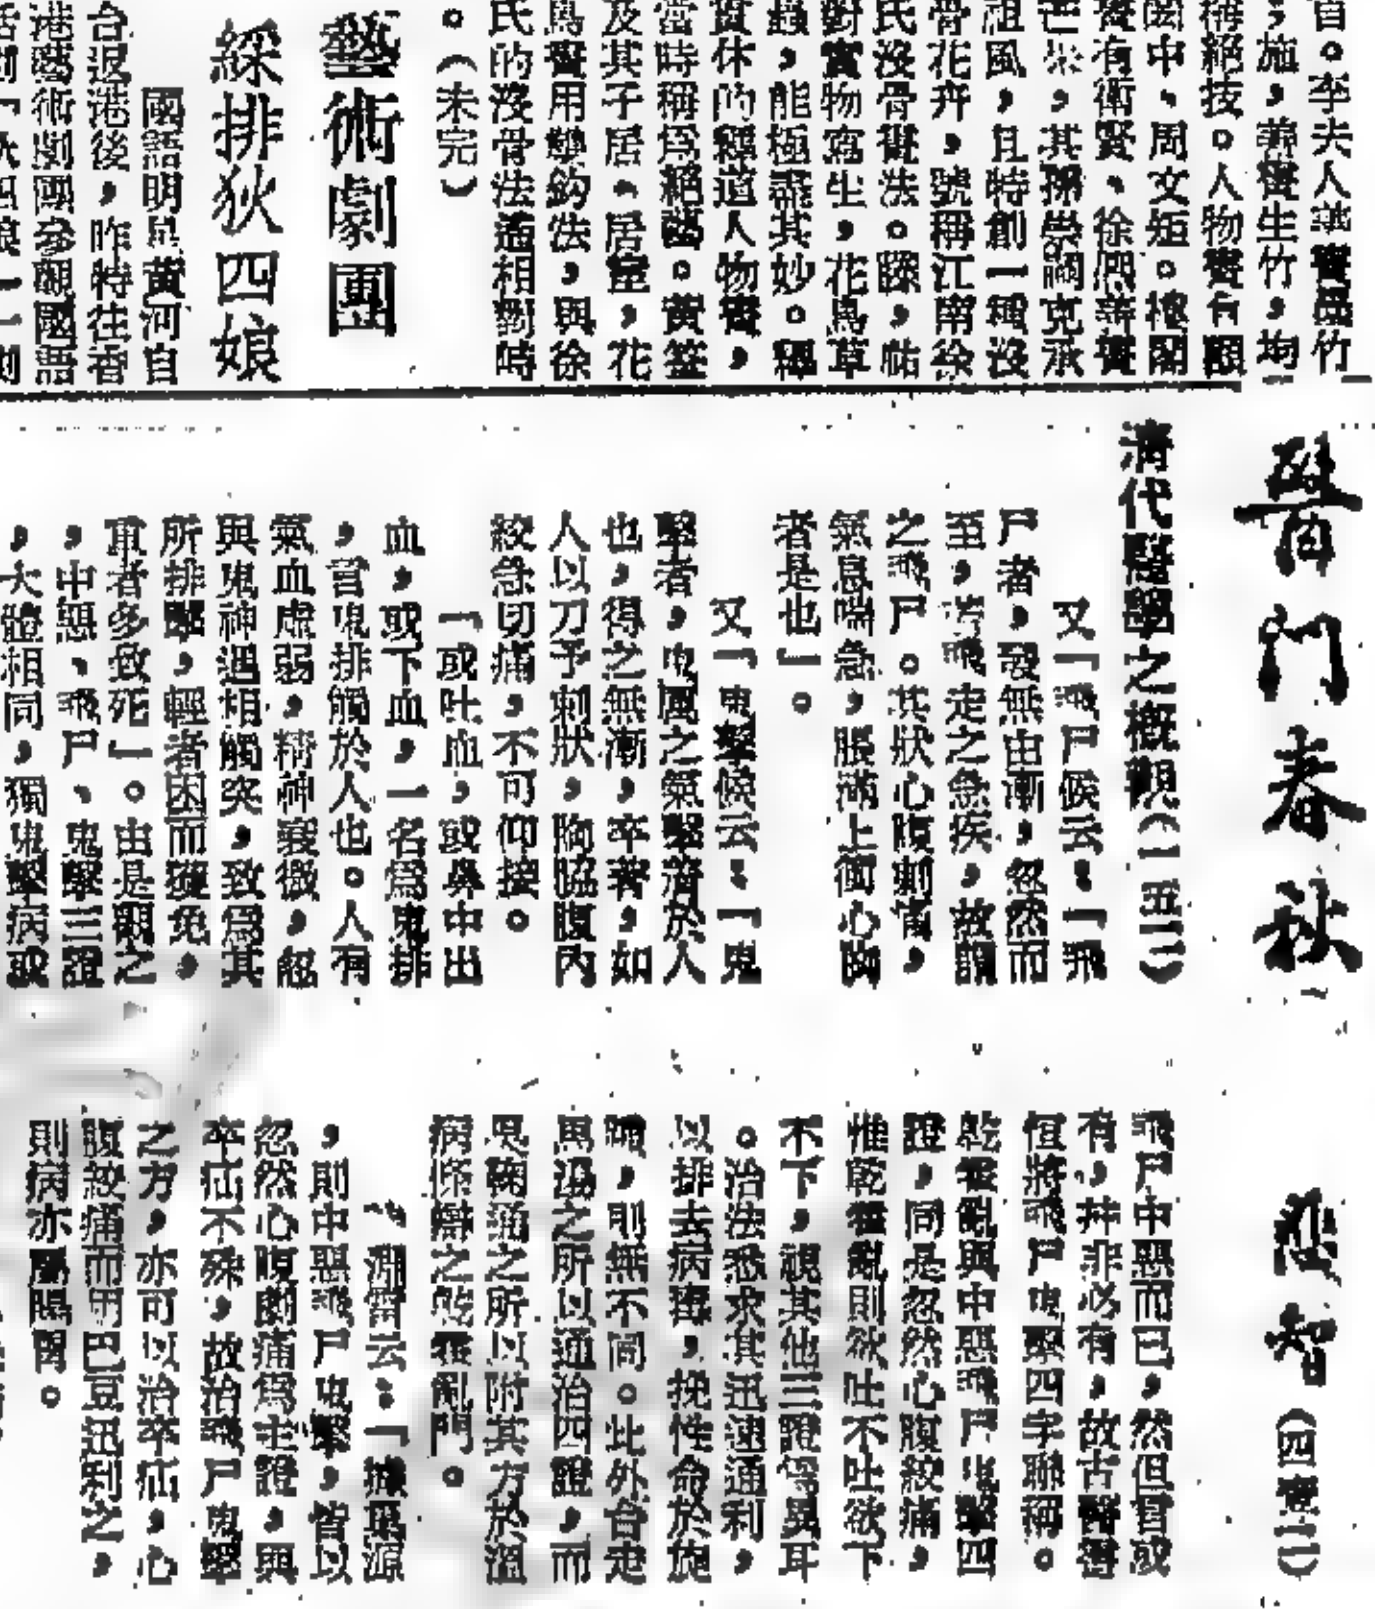 自。李夫人善寫墨竹
，施，善寫生竹，均
稱絕技。人物畫有顧
閎中、周文矩。樓閣
畫有衛賢、徐熙善畫
芒果，其孫崇嗣克承
祖風，且特創一種沒
骨花卉，號稱江南徐
氏沒骨畫法。滕，帖
對實物寫生，花鳥草
蟲，能極盡其妙。釋
貫休的釋道人物畫，
當時稱爲絕藝。黃筌
及其子居寀、居寶，花
鳥畫用雙鈎法，與徐
氏的沒骨法遙相對峙
。（未完）
藝術劇團
綵排狄四娘
國語明星黃河自
台返港後，昨特往香
港藝術劇團參觀國語
醫門春秋
清代醫學之概觀（一五三）
又「飛尸候云：「飛
尸者，發無由漸，忽然而
至，若飛走之急疾，故謂
之飛尸。其狀心腹刺痛，
氣息喘急，脹滿上衝心胸
者是也」。
又「鬼擊候云：「鬼
擊者，鬼厲之氣擊著於人
也，得之無漸，卒著，如
人以刀予刺狀，胸脇腹內
絞急切痛，不可仰按。
「或吐血，或鼻中出
血，或下血，一名爲鬼排
，言鬼排觸於人也。人有
氣血虛弱，精神衰微，忽
與鬼神遇相觸突，致爲其
所排擊，輕者因而獲免，
重者多致死」。由是觀之
，中惡、飛尸、鬼擊三證
，大體相同，獨鬼擊病或
智（四）
飛尸中惡而已，然但言或
有，幷非必有，故古醫書
恒將飛尸鬼擊四字聯稱。
乾霍亂與中惡飛尸鬼擊四
證，同是忽然心腹絞痛，
惟乾霍亂則欲吐不吐欲下
不下，視其他三證爲異耳
。治法悉求其迅速通利，
以排去病毒，挽性命於施
頃，則無不同。此外台走
馬湯之所以通治四證，而
惲鞠通之所以附其方於溫
病條辯之乾霍亂門。
淵雷云：「據巢源
，則中惡飛尸鬼擊，皆以
忽然心腹劇痛爲主證，與
卒疝不殊，故治飛尸鬼擊
之方，亦可以治卒疝，心
腹絞痛而用巴豆迅利之，
則病亦屬腸胃。